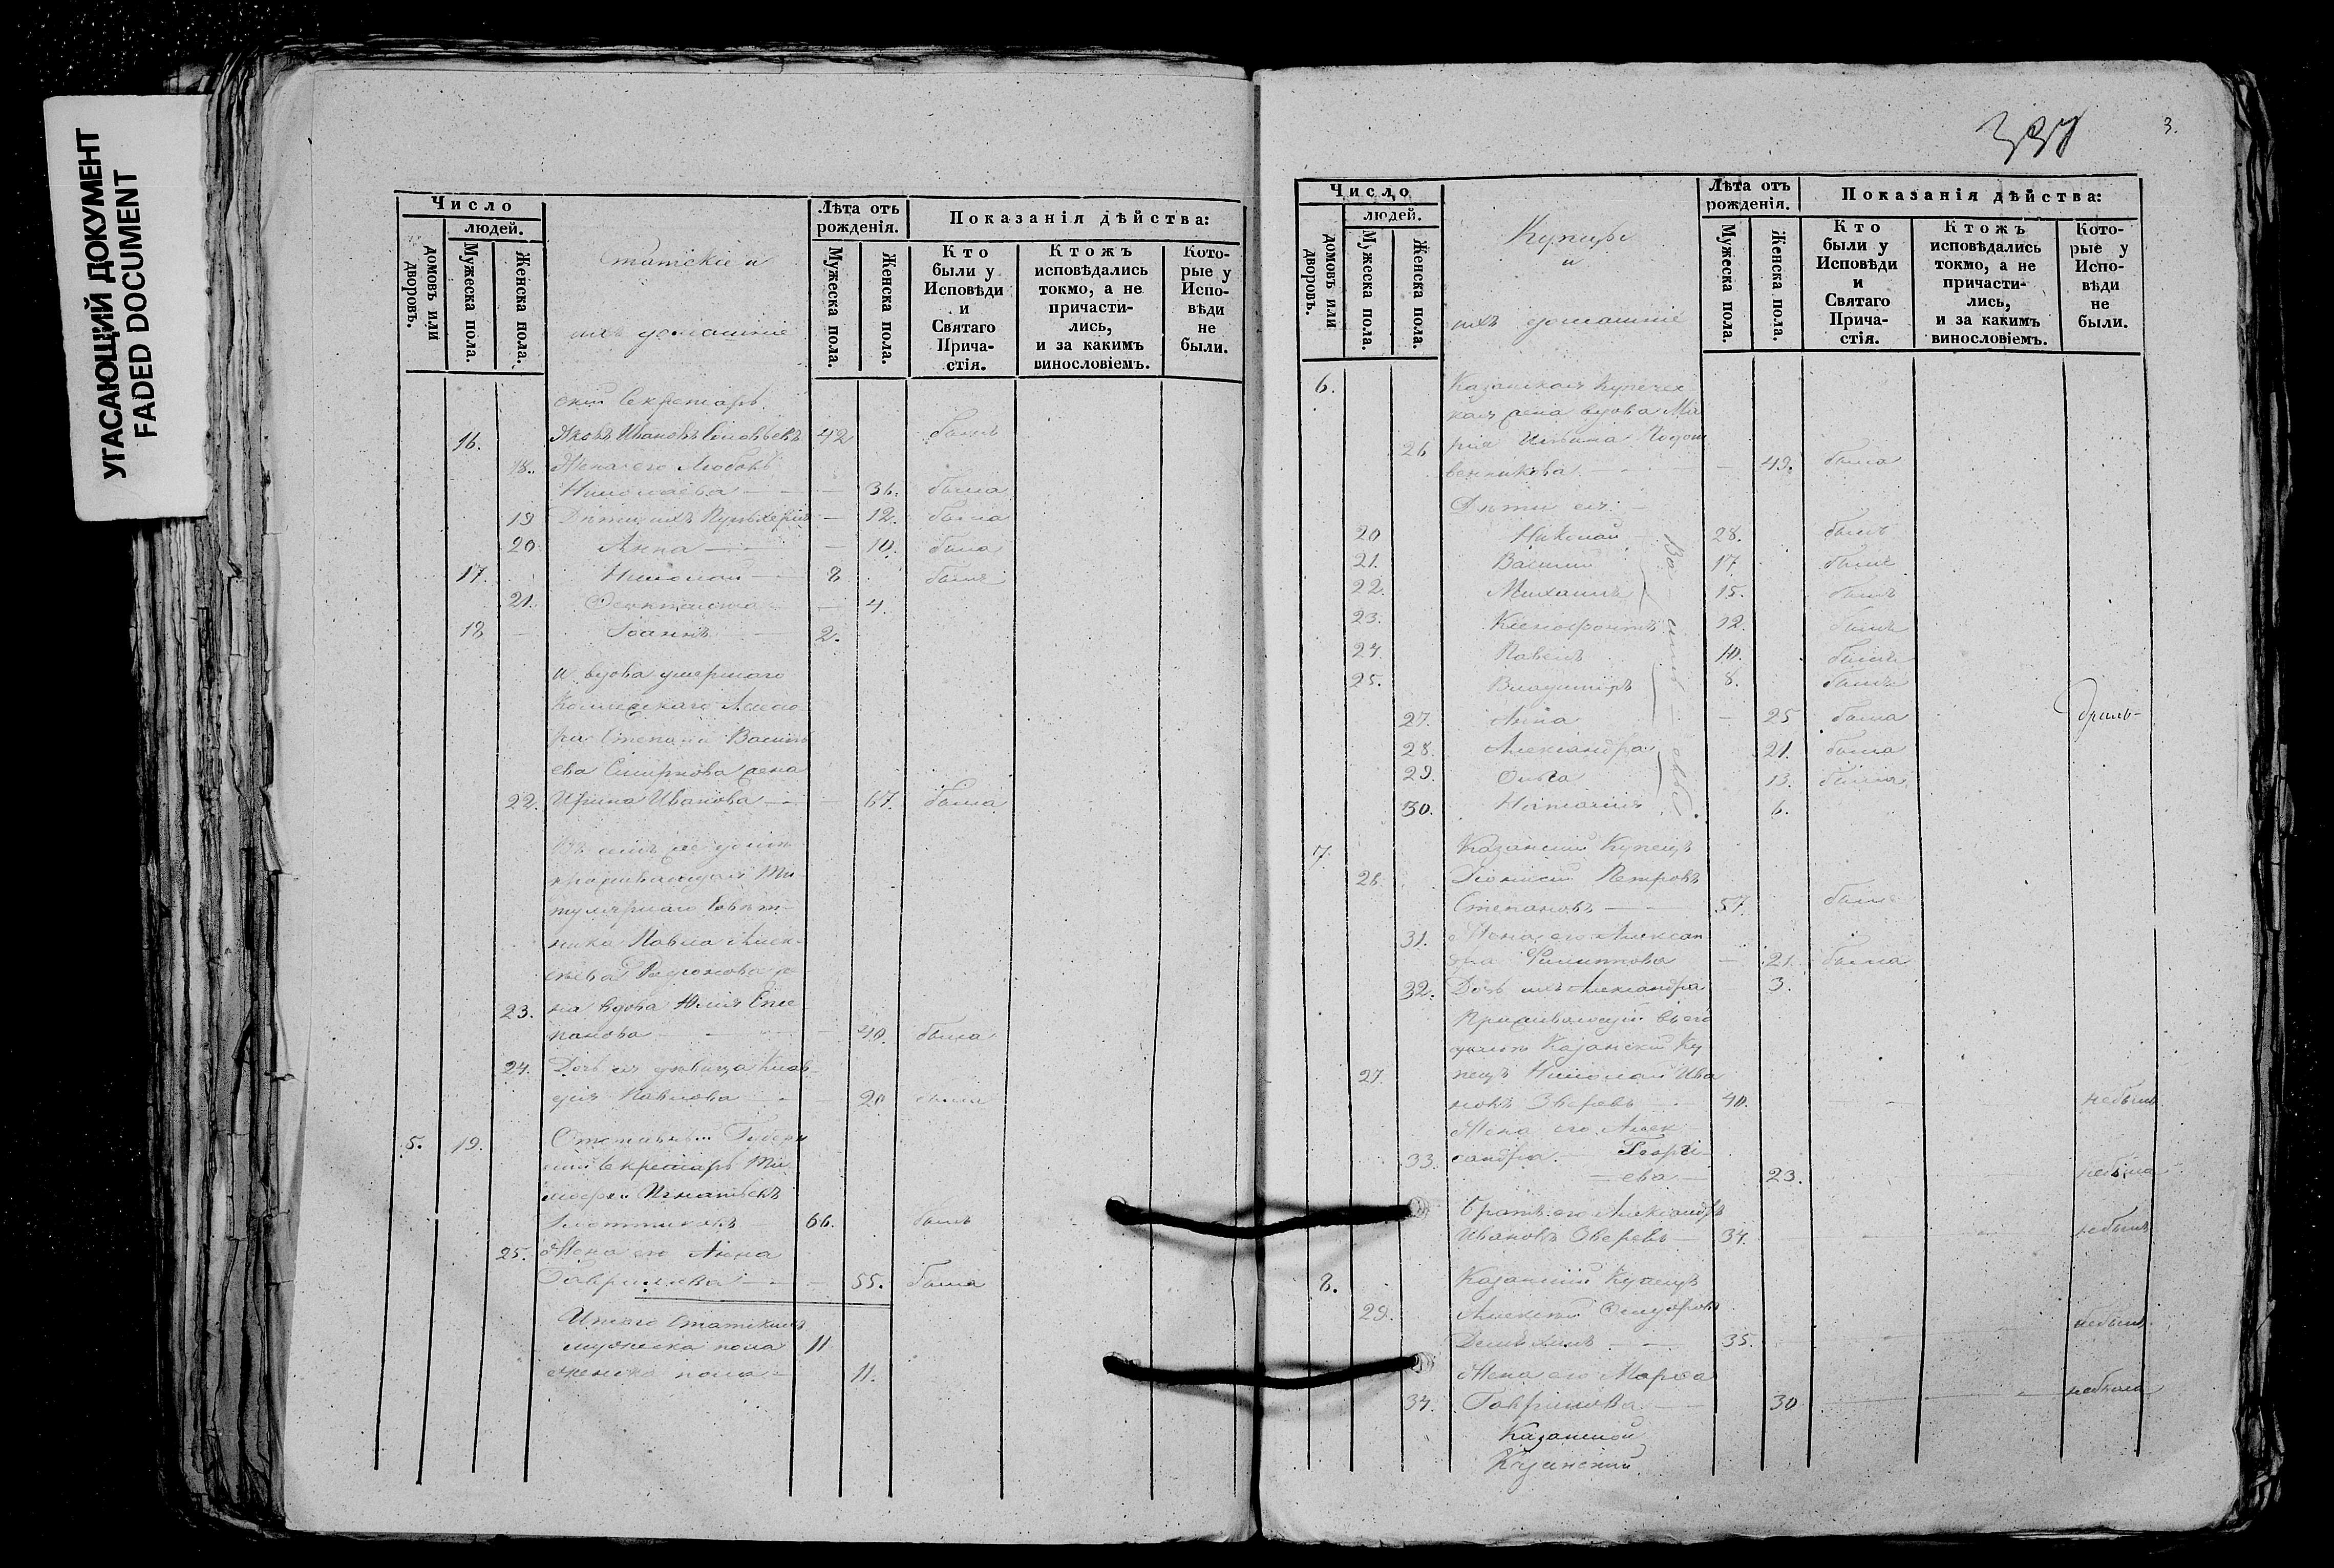 УГАСАЮЩИЙ ДОКУМЕНТ
FADED DOCUMENT
Число
людей.
домовъ или дворовъ.
Мужеска пола.
Женска пола.
Статскіе и
ихъ домашніе
Лѣта отъ рожденія.
Мужеска пола.
Женска пола.
Показанія дѣйства:
Кто были у Исповѣди и Святаго Прича-стія.
Ктожъ исповѣдались токмо, а не причасти-лись, и за какимъ винословіемъ.
Кото-рые у Испо-вѣди не были.
скій Секретарь
16. Яковъ Ивановъ Соловьевъ 42 былъ
18. Жена его Любовь
Николаева — 36. была
19 Дѣти ихъ Пульхерія — 12. была
20 Анна — 10. была
17. Николай — 8 былъ
21. — 4.
18 Іоаннъ 2.
и вдова умершаго
Коллежскаго Ассесо
ра Степана Василь
ева Смирнова жена
22. Ирина Иванова — 67. была
Въ домѣ
проживающая Ти
тулярнаго Совѣт-
ника Павла Алек-
сѣева Родіонова же
23. на вдова Юлія Сте
панова — 40. была
24. Дочь ея дѣвица Клав-
дія Павлова — 20 была
5. 19. Отставный Губерн
скій Секретарь Ти
мофей Игнатьевъ
66. былъ
25. Жена его Анна
Гаврилова — 55. была
Итого Статскихъ
мужеска пола 11
женска пола — 11.
337
3.
Число
людей.
домовъ или дворовъ.
Мужеска пола.
Женска пола.
Купцы
и
ихъ домашніе
Лѣта отъ рожденія.
Мужеска пола.
Женска пола.
Показанія дѣйства:
Кто были у Исповѣди и Святаго Прича-стія.
Ктожъ исповѣдались токмо, а не причасти-лись, и за какимъ винословіемъ.
Кото-рые у Испо-вѣди не были.
6. Казанская Купечес
кая жена вдова Ма
26 рія Ильина
венникова — 49. была
Дѣти ея:
20 Николай 28. былъ
21. Василій 17 былъ
22. Михаилъ 15. былъ
23. Ксенофонтъ 12. былъ
24. Павелъ 10. былъ
25. Владиміръ 8. былъ
27. Анна — 25 была
28. Александра 21. была
29. Ольга 13. была
30. Наталія 6.
Васильевы
7. Казанскій Купецъ
26. Діонисій Петровъ
Степановъ — 57. былъ
31. Жена его Алексан
дра Филиппова — 21. была
32. Дочь ихъ Александра 3.
Проживающій въ его
домѣ Казанскій Ку
27. пецъ Николай Ива
новъ Зверевъ — 40. небылъ
Жена его Алек
33. сандра Георгі-
ева — 23. небыла
Братъ его Александръ
Ивановъ Зверевъ — 34. небылъ
8. Казанскій Купецъ
29. Алексѣй Ѳедоровъ
35. небылъ
Жена его Марѳа
34. Гаврилова — 30 небыла
Казанской
Казанскій